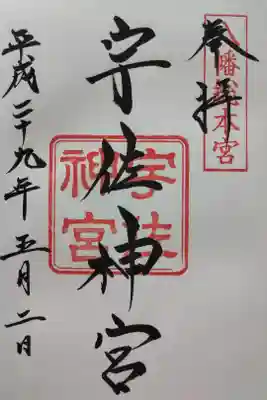 奉拝
八幡総本宮
宇佐神宮
宇佐神宮
平成二十九年五月二日